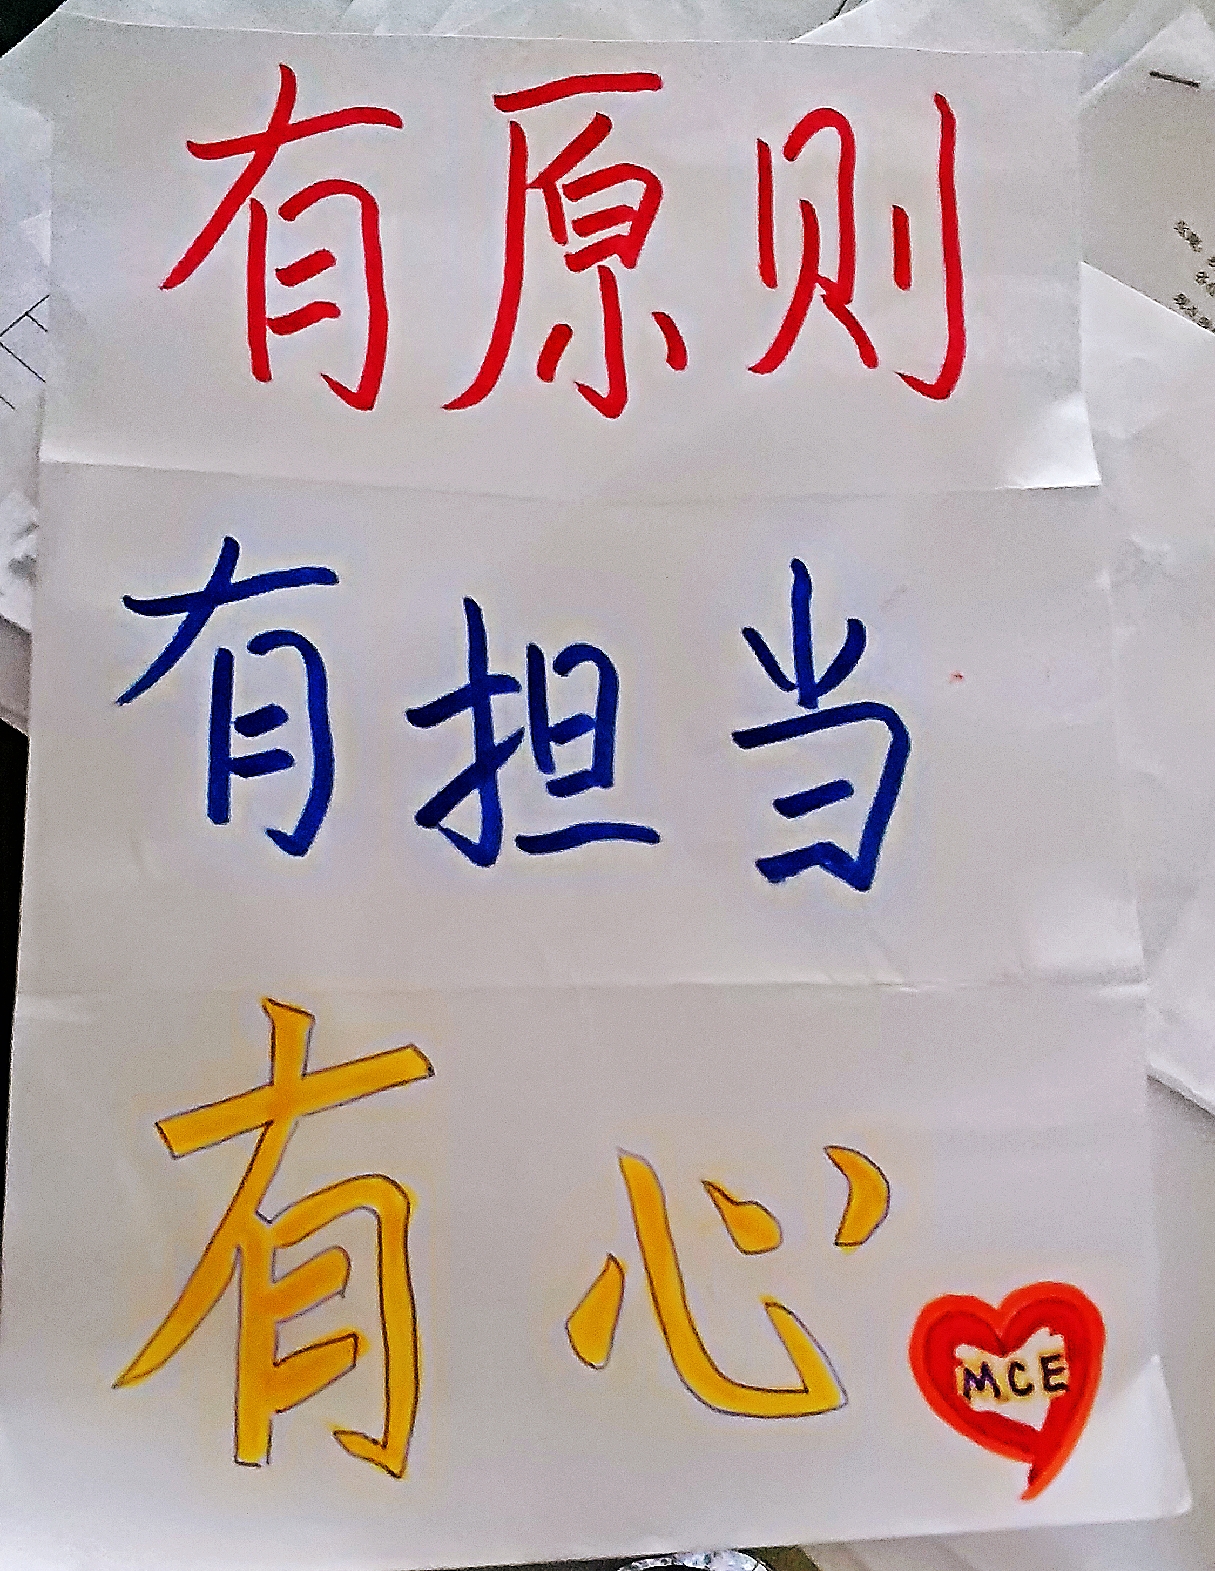 有原则
有担当
有心
MCE